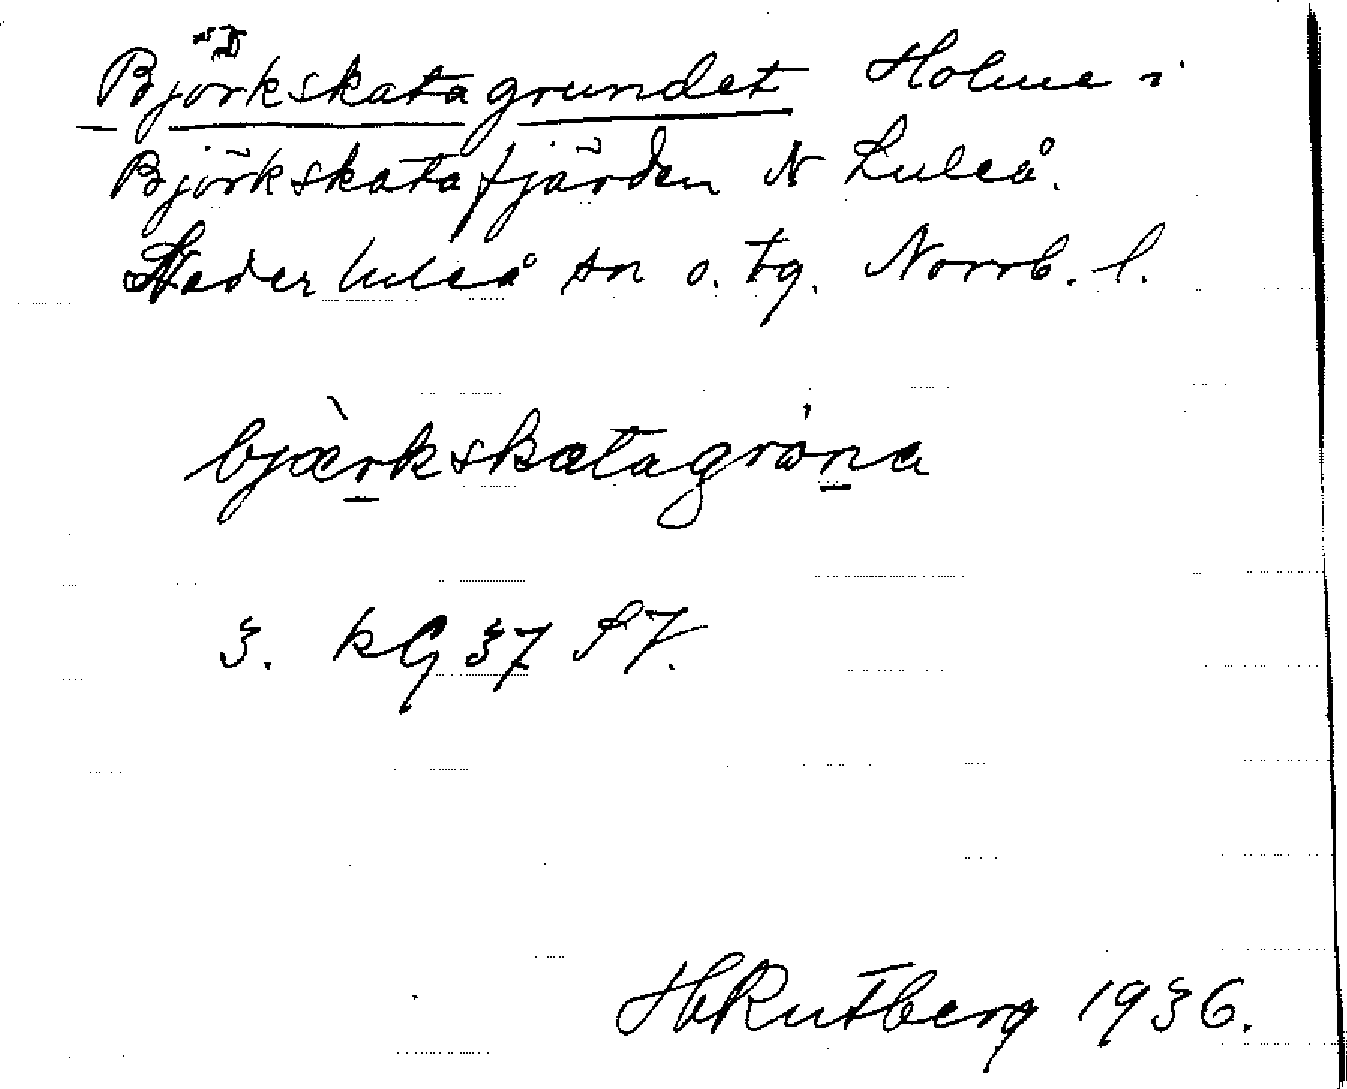 Björkskatagrundet Holme i
Björkskatafjärden N Luleå.
Nederluleå sn o. tg. Norrb. l.
bjærkskatagròna
3. kG 37 SV.
HRutberg 1936.